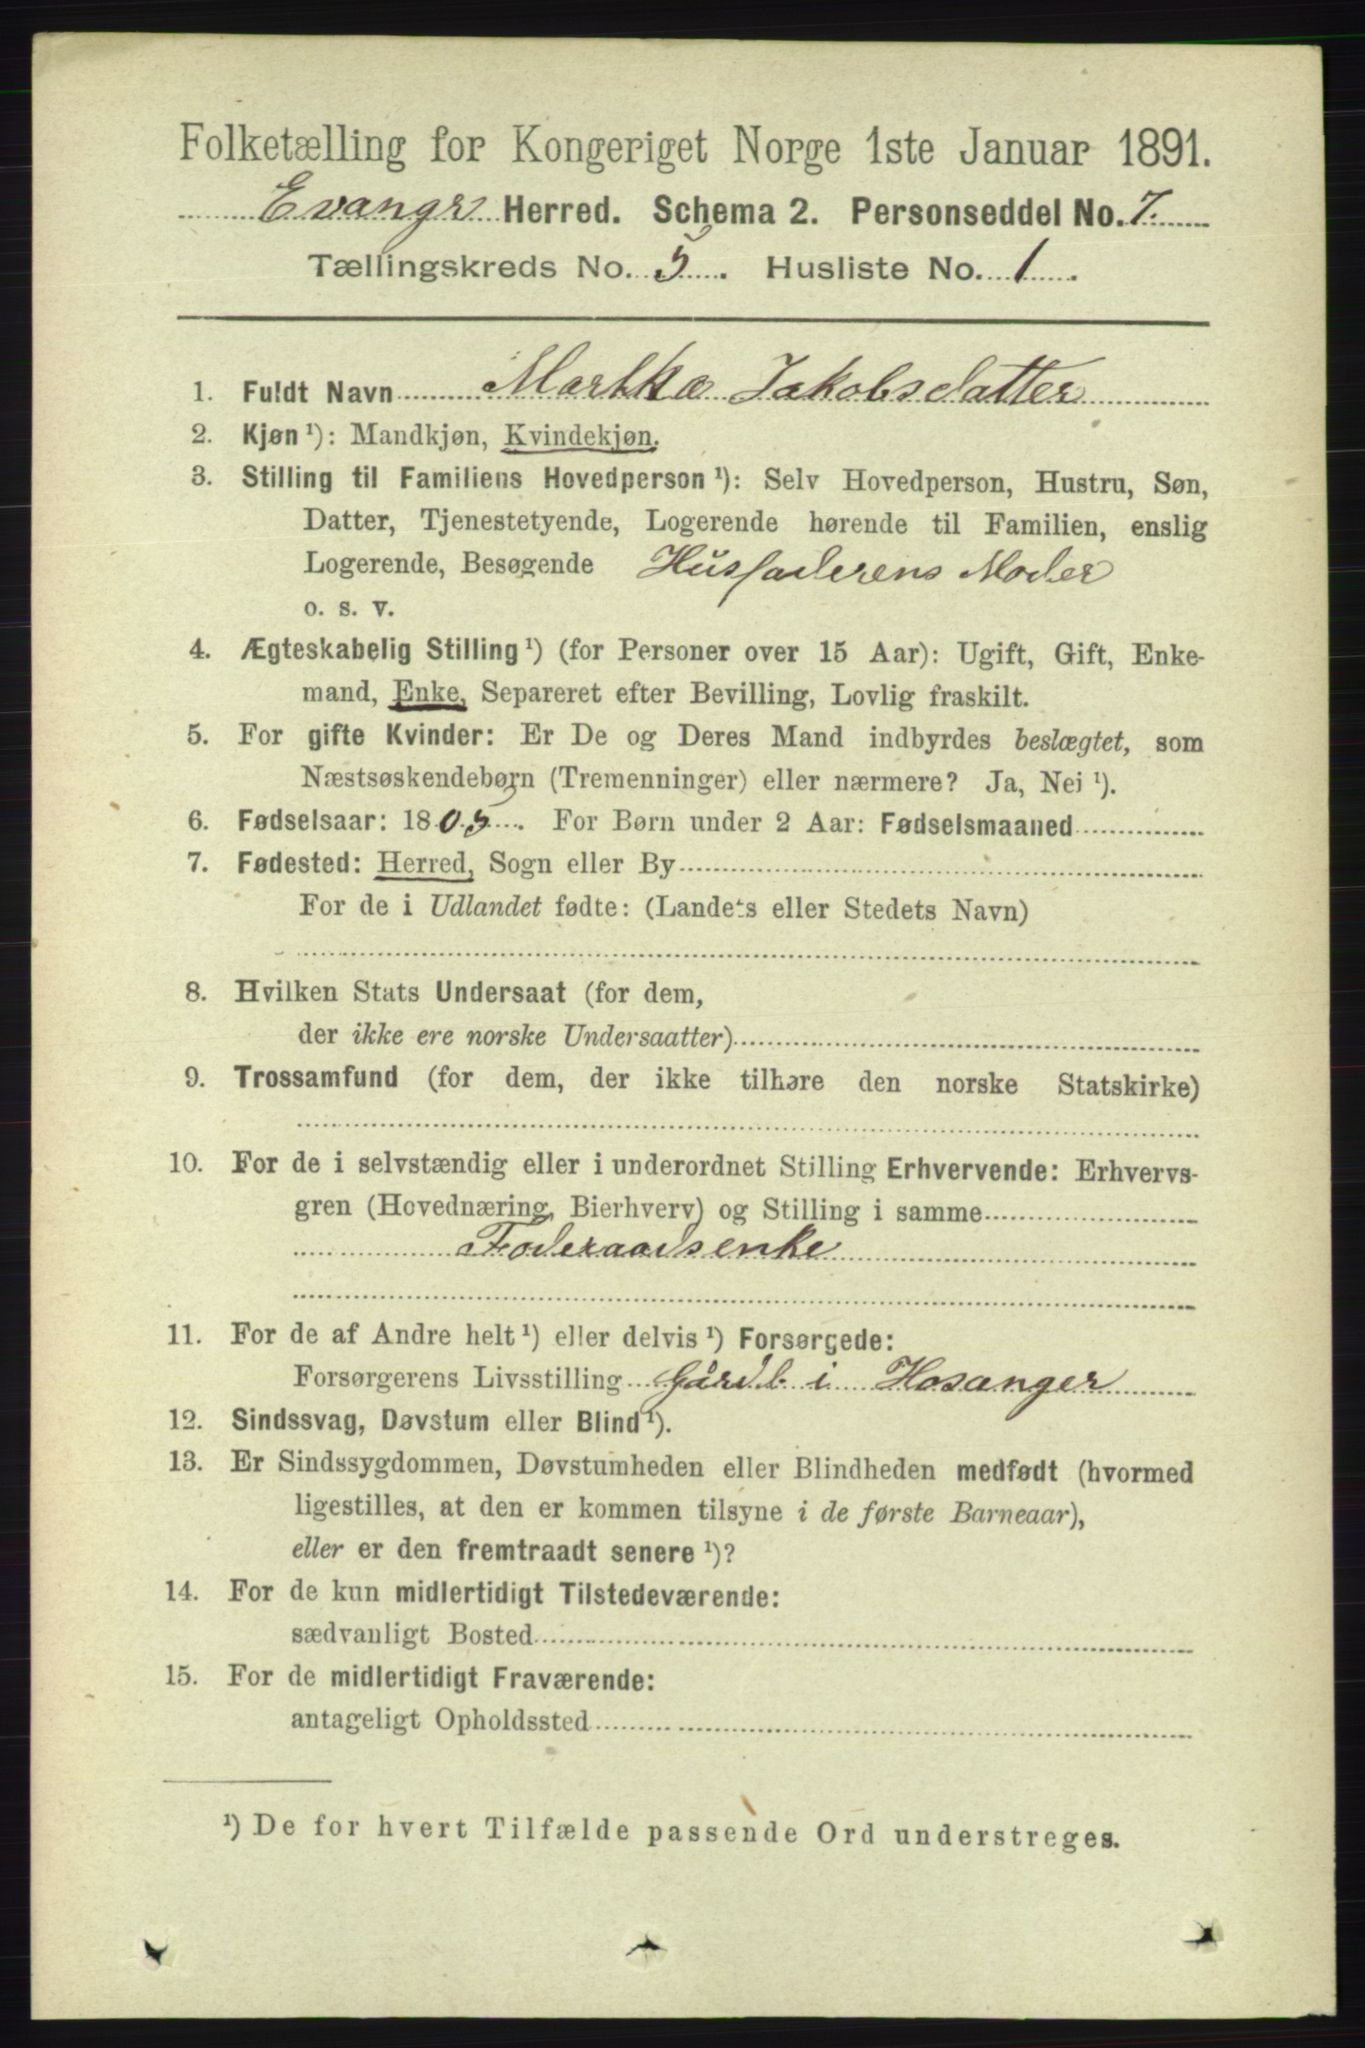 Folketælling for Kongeriget Norge 1ste Januar 1891.
Evanger Herred. Schema 2. Personseddel No. 7.
Tællingskreds No. 5. Husliste No. 1.
1. Fuldt Navn Martha Jakobsdatter
2. Kjøn ¹): Mandkjøn, Kvindekjøn.
3. Stilling til Familiens Hovedperson ¹): Selv Hovedperson, Hustru, Søn,
Datter, Tjenestetyende, Logerende hørende til Familien, enslig
Logerende, Besøgende Husfaderens Moder
o. s. v.
4. Ægteskabelig Stilling ¹) (for Personer over 15 Aar): Ugift, Gift, Enke-
mand, Enke, Separeret efter Bevilling, Lovlig fraskilt.
5. For gifte Kvinder: Er De og Deres Mand indbyrdes beslægtet, som
Næstsøskendebørn (Tremenninger) eller nærmere? Ja, Nei ¹).
6. Fødselsaar: 1805. For Børn under 2 Aar: Fødselsmaaned
7. Fødested: Herred, Sogn eller By
For de i Udlandet fødte: (Landets eller Stedets Navn)
8. Hvilken Stats Undersaat (for dem,
der ikke ere norske Undersaatter)
9. Trossamfund (for dem, der ikke tilhøre den norske Statskirke)
10. For de i selvstændig eller i underordnet Stilling Erhvervende: Erhvervs-
gren (Hovednæring, Bierhverv) og Stilling i samme
Foderaadsenke
11. For de af Andre helt ¹) eller delvis ¹) Forsørgede:
Forsørgerens Livsstilling Gårdb. i Hosanger
12. Sindssvag, Døvstum eller Blind ¹).
13. Er Sindssygdommen, Døvstumheden eller Blindheden medfødt (hvormed
ligestilles, at den er kommen tilsyne i de første Barneaar),
eller er den fremtraadt senere ¹)?
14. For de kun midlertidigt Tilstedeværende:
sædvanligt Bosted
15. For de midlertidigt Fraværende:
antageligt Opholdssted
¹) De for hvert Tilfælde passende Ord understreges.